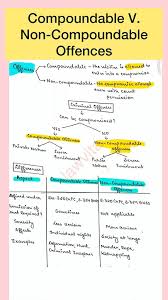 Compoundable V.
Non-Compoundable
Offences
Offences
Compoundable - The victim is allowed to
enter into a compromise
Non-Compoundable - No compromise allowed
even with court
permission
Criminal Offence
Can be compromised?
Yes
No
Compoundable Offences
Non-Compoundable
Offences
Private Nature
Severe
Punishment
Public
Nature
Severe
Punishment
Offences
Aspect
Compoundable Offences
Non-Compoundable
Offences
Sometimes
Not applicable
Less serious
More serious
Individual rights
Society at large
Examples
Defamation, Hurt,
Criminal Trespass
Murder, Rape,
Kidnapping